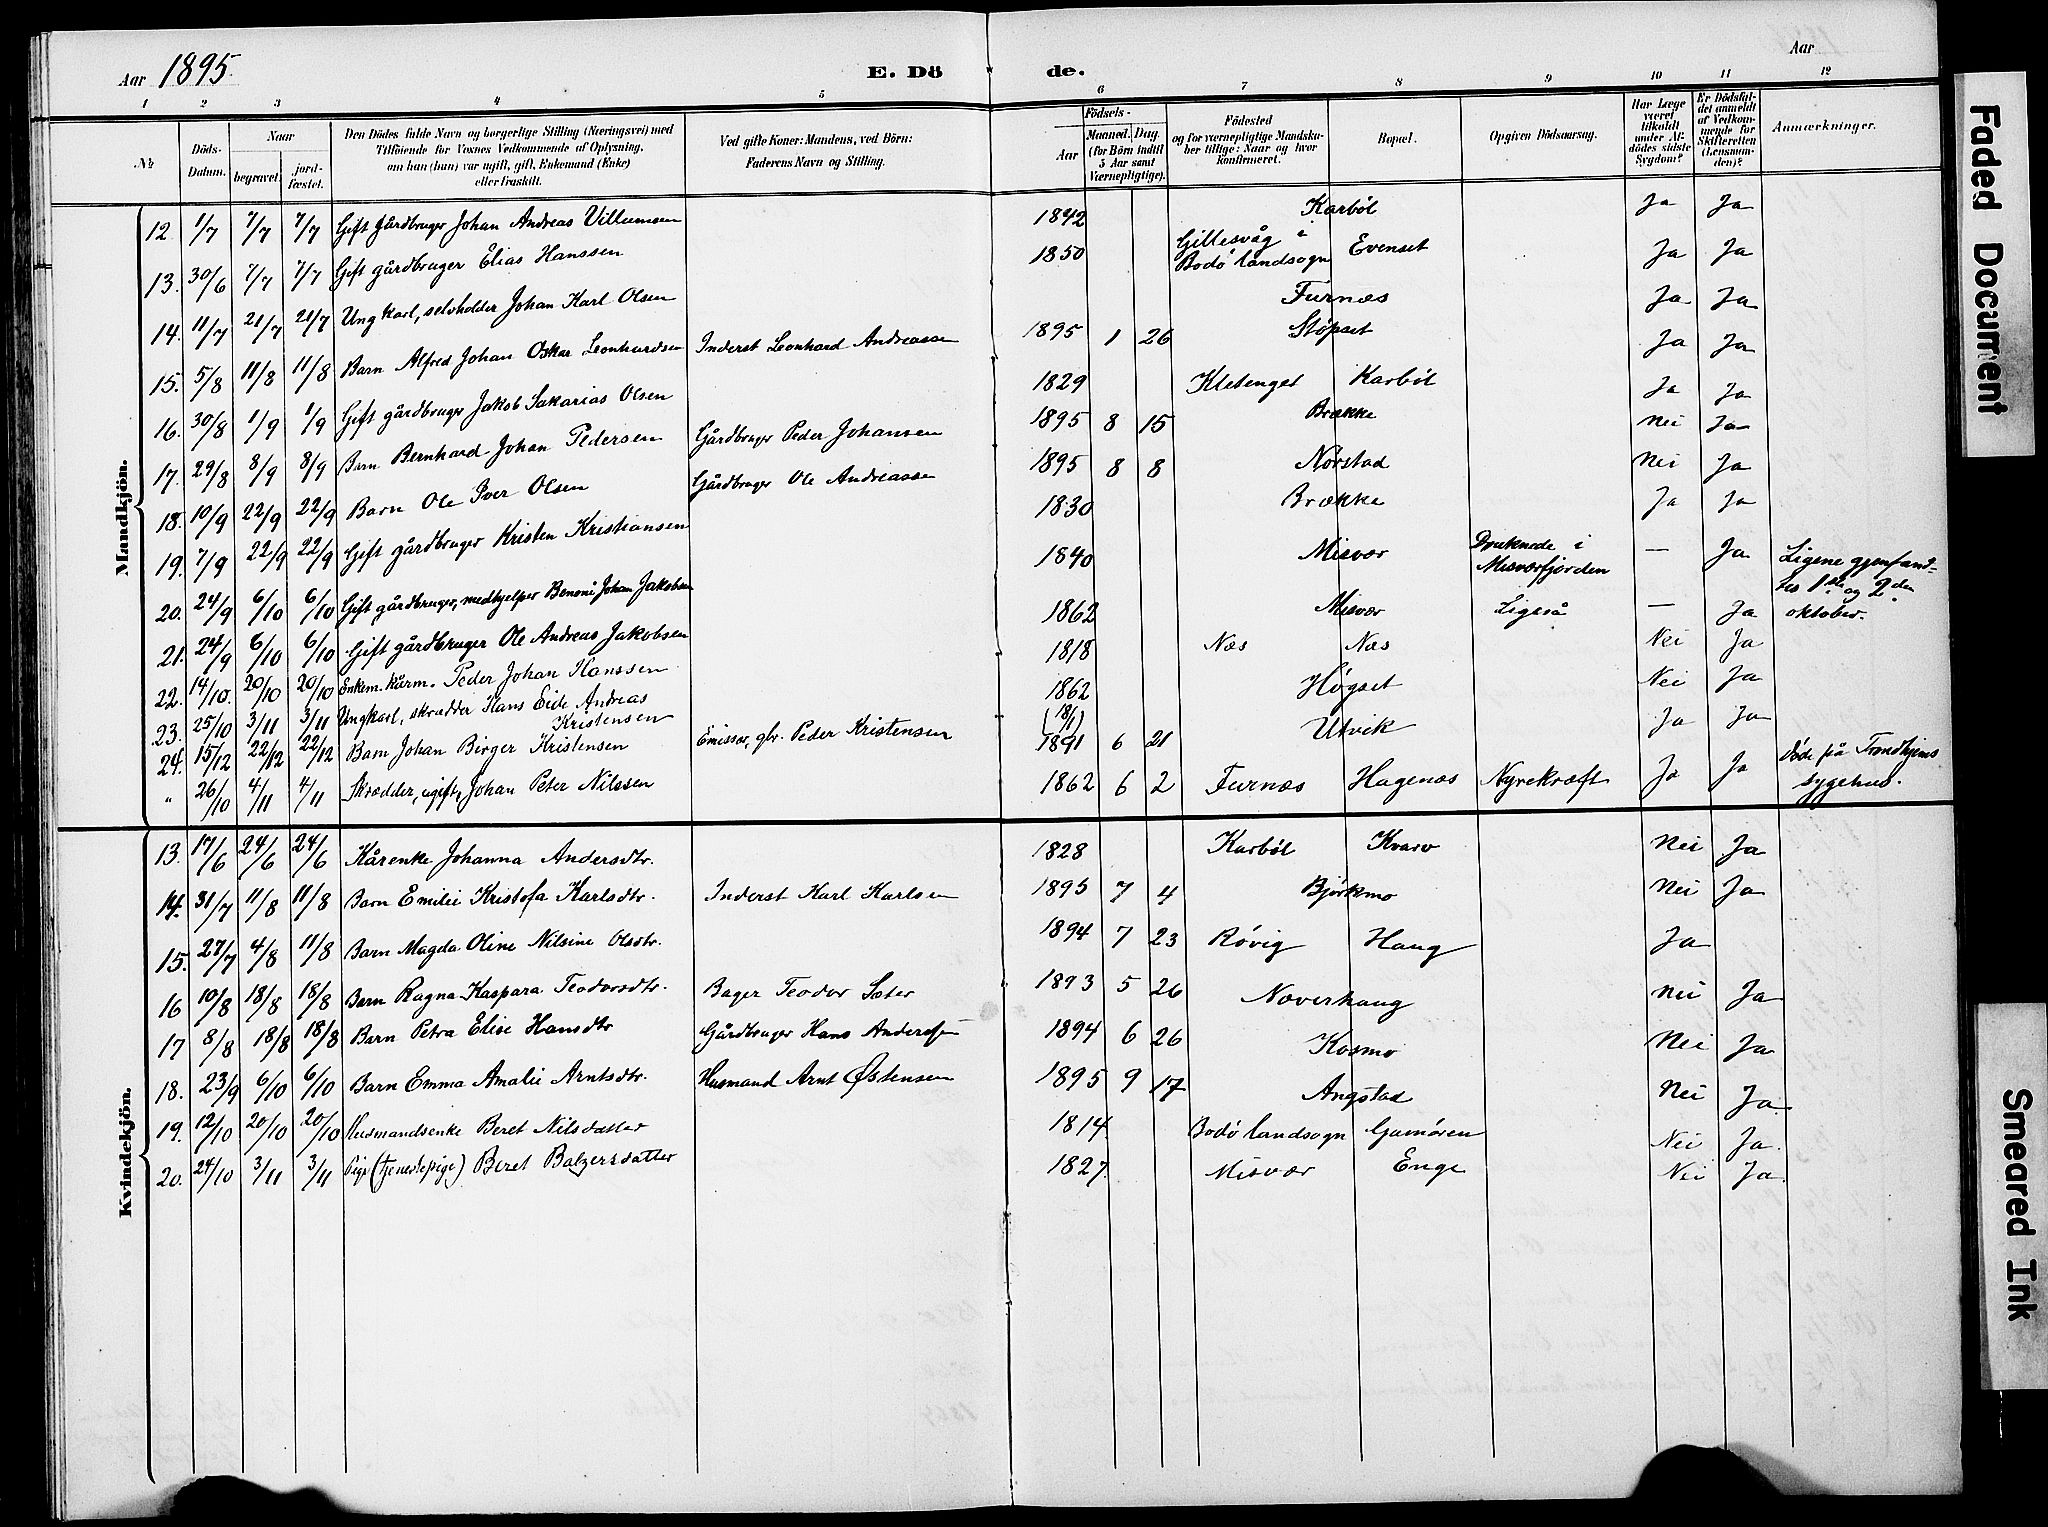 Aar 1895.
E. Döde.
Aar
1 2 3 4 5 6 7 8 9 10 11 12
№
Döds-Datum.
Naar
begravet.
jord-fæstet.
Den Dödes fulde Navn og borgerlige Stilling (Næringsvei) med
Tilföiende for Voxnes Vedkommende af Oplysning,
om han (hun) var ugift, gift, Enkemand (Enke)
eller fraskilt.
Ved gifte Koner: Mandens, ved Börn:
Faderens Navn og Stilling.
Födsels-
Aar
Maaned. Dag.
(for Börn indtil
5 Aar samt
Værnepligtige).
Födested
og for værnepligtige Mandska-
ber tillige: Naar og hvor
konfirmeret.
Bopæl.
Opgiven Dödsaarsag.
Har Læge
været
tilkaldt
under Af-
dödes sidste
Sygdom?
Er Dödsfal-
det anmeldt
af Vedkom-
mende for
Skifteretten
(Lensman-
den)?
Anmærkninger.
Mandkjön.
12. 1/7 7/7 7/7 Gift gårdbruger Johan Andreas Villumsen 1842 Karbøl Ja Ja
13. 30/6 7/7 7/7 Gift gårdbruger Elias Hanssen 1850 Gillesvåg i Bodø landsogn Evenset Ja Ja
14. 11/7 21/7 21/7 Ungkarl, selvholder Johan Karl Olsen Furnæs Ja Ja
15. 5/8 11/8 11/8 Barn Alfred Johan Oskar Leonhardsen Inderst Leonhard Andreassen 1895 1 26 Støpset Ja Ja
16. 30/8 1/9 1/9 Gift gårdbruger Jakob Sakarias Olsen 1829 Kletenget Karbøl Ja Ja
17. 29/8 8/9 8/9 Barn Bernhard Johan Pedersen Gårdbruger Peder Johansen 1895 8 15 Brække Nei Ja
18. 10/9 22/9 22/9 Barn Ole Iver Olsen Gårdbruger Ole Andreassen 1895 8 8 Nørstad Nei Ja
19. 7/9 22/9 22/9 Gift gårdbruger Kristen Kristiansen 1830 Brække Ja Ja
20. 24/9 6/10 6/10 Gift gårdbruger, medhjelper Benoni Johan Jakobsen 1840 Misvær Druknede i Misværfjorden — Ja Ligene gjenfand-
tes 1ste og 2den
21. 24/9 6/10 6/10 Gift gårdbruger Ole Andreas Jakobsen 1862 Misvær Ligeså — Ja oktober.
22. 14/10. 20/10 20/10 Enkem. kårm. Peder Johan Hanssen 1818 Næs Næs Nei Ja
23. 25/10 3/11 3/11 Ungkarl, skrædder Hans Eide Andreas
Kristensen 1862 (18/1) Høgset Nei Ja
24. 15/12 22/12 22/12 Barn Johan Birger Kristensen Emissær, gbr. Peder Kristensen 1891 6 21 Utvik Ja Ja
" 26/10 4/11 4/11 Skrædder, ugift, Johan Peter Nilssen 1862 6 2 Furnæs Hagenæs Nyrekræft Ja Ja Døde på Trondhjems
sygehus.
Kvindekjön.
13. 17/6 24/6 24/6 Kårenke Johanna Andersdtr. 1828 Karbøl Kvarv Nei Ja
14. 31/7 11/8 11/8 Barn Emilie Kristofa Karlsdtr. Inderst Karl Karlsen 1895 7 4 Bjørkmo Nei Ja
15. 27/7 4/8 11/8 Barn Magda Oline Nilsine Olsdtr. 1894 7 23 Røvig Haug Ja
16 10/8 18/8 18/8 Barn Ragna Kaspara Teodorsdtr. Bager Teodor Sæter 1893 5 26 Noverhaug Nei Ja
17 8/8 18/8 18/8 Barn Petra Elise Hansdtr Gårdbruger Hans Andersen 1894 6 26 Kosmo Nei Ja
18. 23/9 6/10 6/10 Barn Emma Amalie Arntsdtr. Husmand Arnt Østensen 1895 9 17 Angstad Nei Ja
19. 12/10 20/10 20/10 Husmandsenke Beret Nilsdatter 1814 Bodø landsogn Gamøren Nei Ja.
20. 24/10 3/11 3/11 Pige (tjenestepige) Beret Balzersdatter 1827 Misvær Enge Nei Ja
Faded Document
Smeared Ink